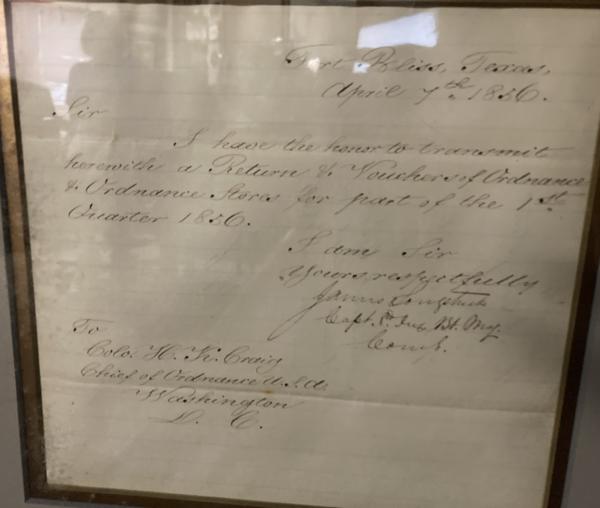 Fort Bliss, Texas,
April 7th. 1856.
Sir
I have the honor to transmit
herewith a Return & Vouchers of Ordnance
& Ordnance Stores for part of the 1st
Quarter 1856.
I am Sir
Yours respectfully
James Longstreet
Capt. 8th Inf. Bt. Maj.
Comg.
To
Colo. H. K. Craig
Chief of Ordnance U.S.A.
Washington
D. C.